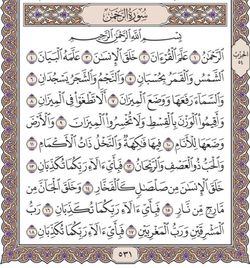 سُورَةُ الرَّحْمَٰن
بِسْمِ اللَّهِ الرَّحْمَٰنِ الرَّحِيمِ
الرَّحْمَٰنُ ١ عَلَّمَ الْقُرْءَانَ ٢ خَلَقَ الْإِنسَٰنَ ٣ عَلَّمَهُ الْبَيَانَ ٤
الشَّمْسُ وَالْقَمَرُ بِحُسْبَانٍ ٥ وَالنَّجْمُ وَالشَّجَرُ يَسْجُدَانِ ٦
وَالسَّمَاءَ رَفَعَهَا وَوَضَعَ الْمِيزَانَ ٧ أَلَّا تَطْغَوْا فِي الْمِيزَانِ ٨
وَأَقِيمُوا الْوَزْنَ بِالْقِسْطِ وَلَا تُخْسِرُوا الْمِيزَانَ ٩ وَالْأَرْضَ
وَضَعَهَا لِلْأَنَامِ ١٠ فِيهَا فَٰكِهَةٌ وَالنَّخْلُ ذَاتُ الْأَكْمَامِ ١١
وَالْحَبُّ ذُو الْعَصْفِ وَالرَّيْحَانُ ١٢ فَبِأَيِّ ءَالَاءِ رَبِّكُمَا تُكَذِّبَانِ ١٣
خَلَقَ الْإِنسَٰنَ مِن صَلْصَٰلٍ كَالْفَخَّارِ ١٤ وَخَلَقَ الْجَانَّ مِن
مَّارِجٍ مِّن نَّارٍ ١٥ فَبِأَيِّ ءَالَاءِ رَبِّكُمَا تُكَذِّبَانِ ١٦ رَبُّ
الْمَشْرِقَيْنِ وَرَبُّ الْمَغْرِبَيْنِ ١٧ فَبِأَيِّ ءَالَاءِ رَبِّكُمَا تُكَذِّبَانِ ١٨
٥٣١
الحزب
٥٤